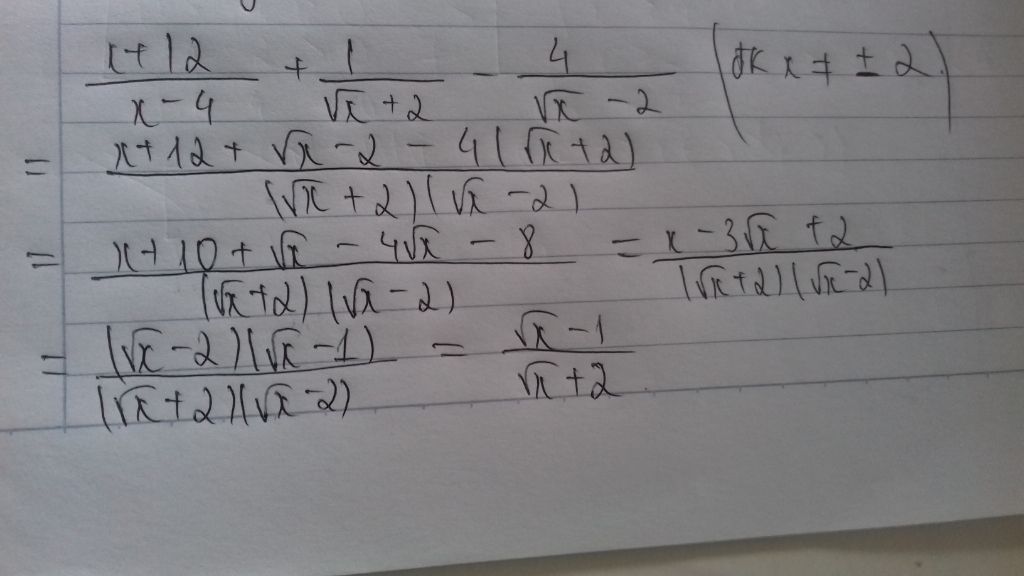 x+12/x-4 + 1/√x+2 - 4/√x-2 (đk x ≠ ±2)
= x+12+√x-2-4(√x+2)/(√x+2)(√x-2)
= x+10+√x-4√x-8/(√x+2)(√x-2) = x-3√x+2/(√x+2)(√x-2)
= (√x-2)(√x-1)/(√x+2)(√x-2) = √x-1/√x+2